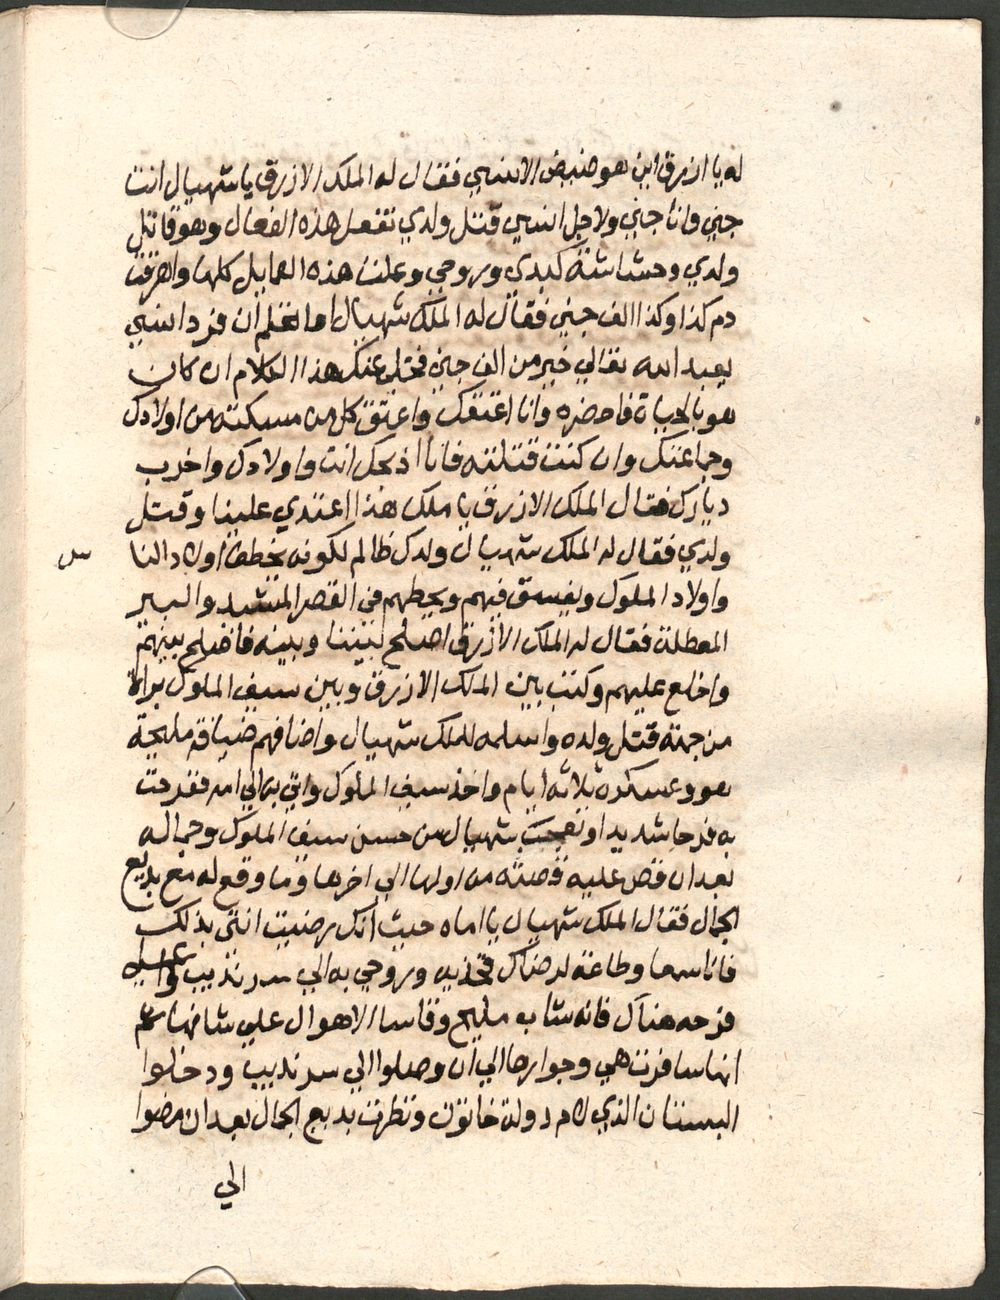 له يا ازرق اين هو ضبض الانسي فقال له الملك الازرق يا شهيال انت
جني وانا جني ولاجل انسي قتل ولدي تفعل هذه الفعال وهو قاتل
ولدي وحشاشة كبدي وروحي وعملت هذه العمايل كلها واهرقت
دم كذا وكذا الف جني فقال له الملك شهيال اما تعلم ان فرد انسي
يعبد الله تعالي خير من الف جني فخلي عنك هذا الكلام ان كان
هو بالحياة فاحضره وانا اعتقك واعتق كل من مسكته من اولادك
وجماعتك وان كنت قتلته فانا اذبحك انت واولادك واخرب
ديارك فقال الملك الازرق يا ملك هذا اعتدي علينا وقتل
ولدي فقال له الملك شهيال ان ولدك ظالم لكونه يخطف اولاد النا
س
واولاد الملوك ويفسق فيهم ويحطهم في القصر المشيد والبير
المعطلة فقال له الملك الازرق اصلح بيننا وبينه فاصلح بينهم
واخلع عليهم وكتب بين الملك الازرق وبين سيف الملوك براة
من جهة قتل ولده واسلمه للملك شهيال واضافهم ضيافة مليحة
هو وعسكره ثلاثه ايام واخذ سيف الملوك واتي به الي امه ففرحت
به فرحا شديدا وتعجب شهيال من حسن سيف الملوك وجماله
بعد ان قص عليه قصته من اولها الي اخرها وما وقع له مع بديع
الجمال فقال الملك شهيال يا اماه حيث انك رضيت انتي بذلك
فانا سمعا وطاعة لرضاك فخذيه وروحي به الي سرنديب واعملي
فرحه هناك فانه شاب مليح وقاسا الاهوال علي شانها ثم
انها سافرت هي وجوارها الي ان وصلوا الي سرنديب ودخلوا
البستان الذي لام دولة خاتون ونظرت بديع الجمال بعد ان مضوا
الي